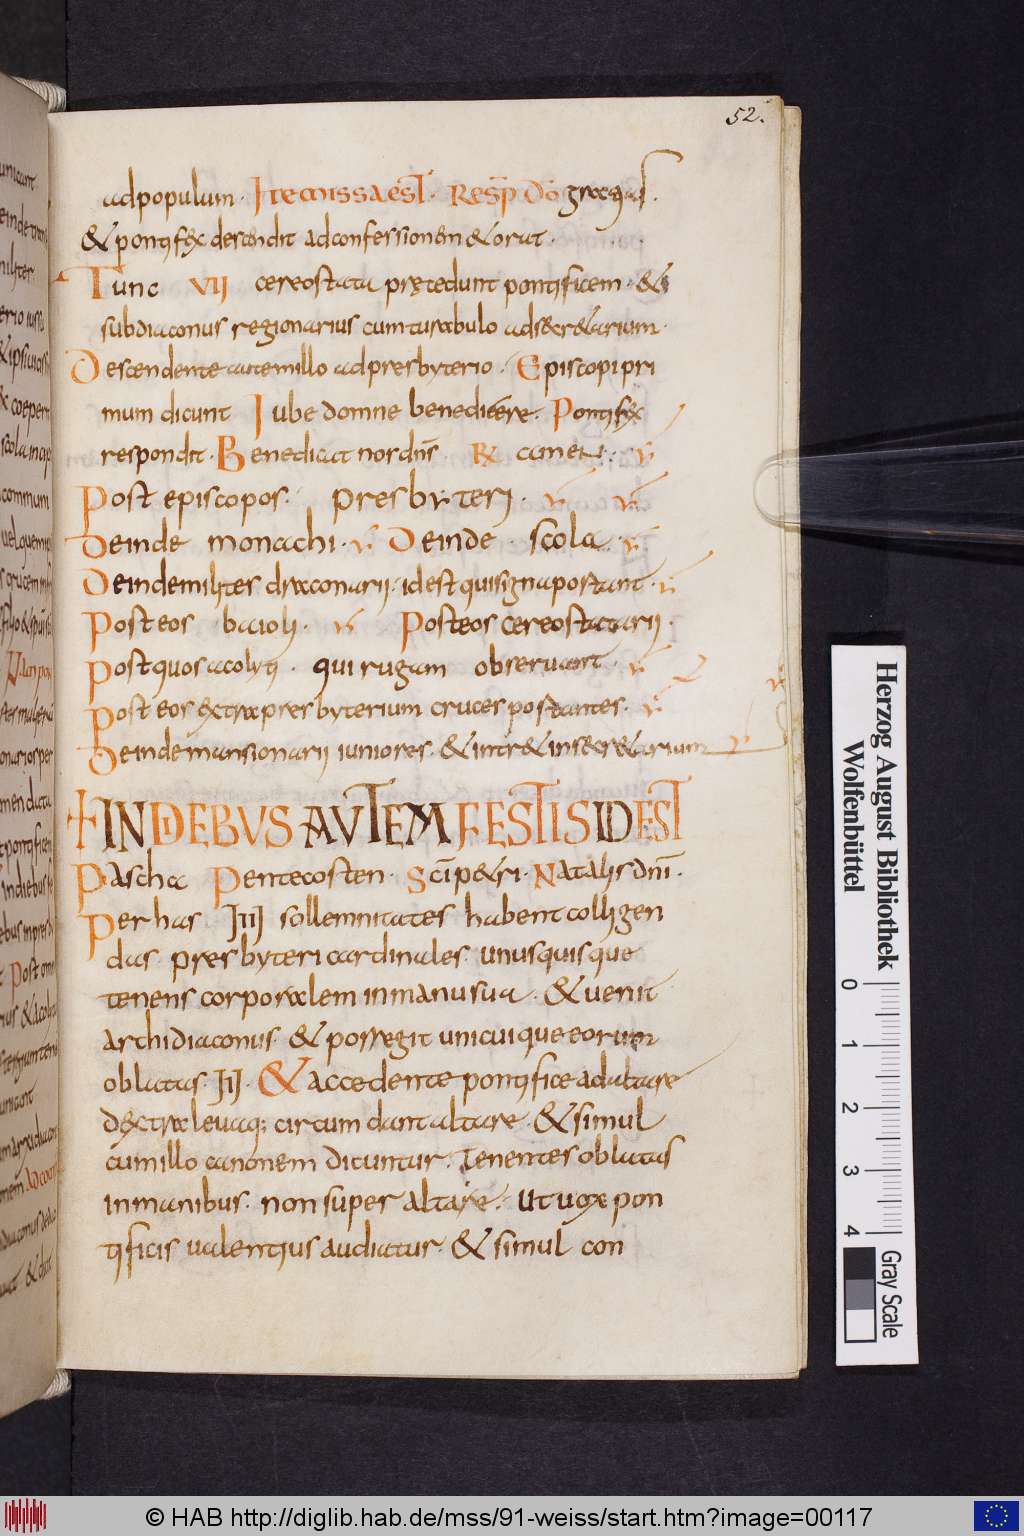 52.
ad populum. Ite missa est. Resp̄ Dō gracias.
& pontifex descendit ad confessionem & orat.
Tunc VII cereostata pręcedunt pontificem. &
subdiaconus regionarius cum turabulo ad secr&arium.
Descendente autem illo ad presbyterio. Episcopi pri
mum dicunt Iube domne benedicere. Pontifex
respondit. Benedicat nos dn̄s R& amen.
Post episcopos. presbyteri.
Deinde monachi. Deinde scola.
Deinde milites draconarii. id est qui signa portant.
Post eos baioli. Post eos cereostatarii.
Post quos acolyti. qui rugam observant.
Post eos extra presbyterium cruces portantes.
Deinde mansionarii iuniores. & intr& in secr&arium
+ IN DIEBVS AVTEM FESTIS ID EST
Pascha Pentecosten. Sc̄i p&ri. Natalis dn̄i.
Per has IIII sollemnitates habent colligen
das presbyteri cardinales. unusquisque
tenens corporalem in manu sua. & venit
archidiaconus. & porregit unicuique eorum
oblatas. III. & accedente pontifice ad altare
dextra levaq; circumdant altare. & simul
cum illo canonem dicuntur. Tenentes oblatas
in manibus. non super altare. Ut vox pon
tificis valentius audiatur. & simul con
Herzog August Bibliothek
Wolfenbüttel
0 1 2 3 4
Gray Scale
© HAB http://diglib.hab.de/mss/91-weiss/start.htm?image=00117